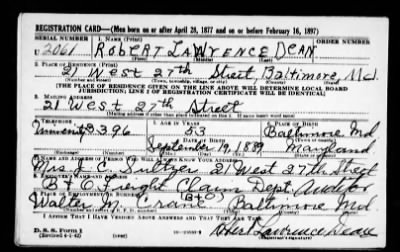 REGISTRATION CARD—(Men born on or after April 28, 1877 and on or before February 16, 1897)
SERIAL NUMBER 1. NAME (Print) ORDER NUMBER
U 2061 ROBERT LAWRENCE DEAN
(First) (Middle) (Last)
2. PLACE OF RESIDENCE (Print)
21 West 27th Street, Baltimore, Md.
(Number and street) (Town, township, village, or city) (County) (State)
[THE PLACE OF RESIDENCE GIVEN ON THE LINE ABOVE WILL DETERMINE LOCAL BOARD
JURISDICTION; LINE 2 OF REGISTRATION CERTIFICATE WILL BE IDENTICAL]
3. MAILING ADDRESS
21 West 27th Street
[Mailing address if other than place indicated on line 2. If same insert word same]
4. TELEPHONE 5. AGE IN YEARS 6. PLACE OF BIRTH
University 2396 53 Baltimore Md
DATE OF BIRTH
September 19, 1889 Maryland
7. NAME AND ADDRESS OF PERSON WHO WILL ALWAYS KNOW YOUR ADDRESS
Mrs. E. C. 21 West 27th Street
8. EMPLOYER'S NAME AND ADDRESS
B + O Freight Claim Dept. Auditor
Walter M. (B+O) Baltimore Md
I AFFIRM THAT I HAVE VERIFIED ABOVE ANSWERS AND THAT THEY ARE TRUE.
D. S. S. Form 1
(Revised 4-1-42) (over)
Robert Lawrence Dean
(Registrant's signature)